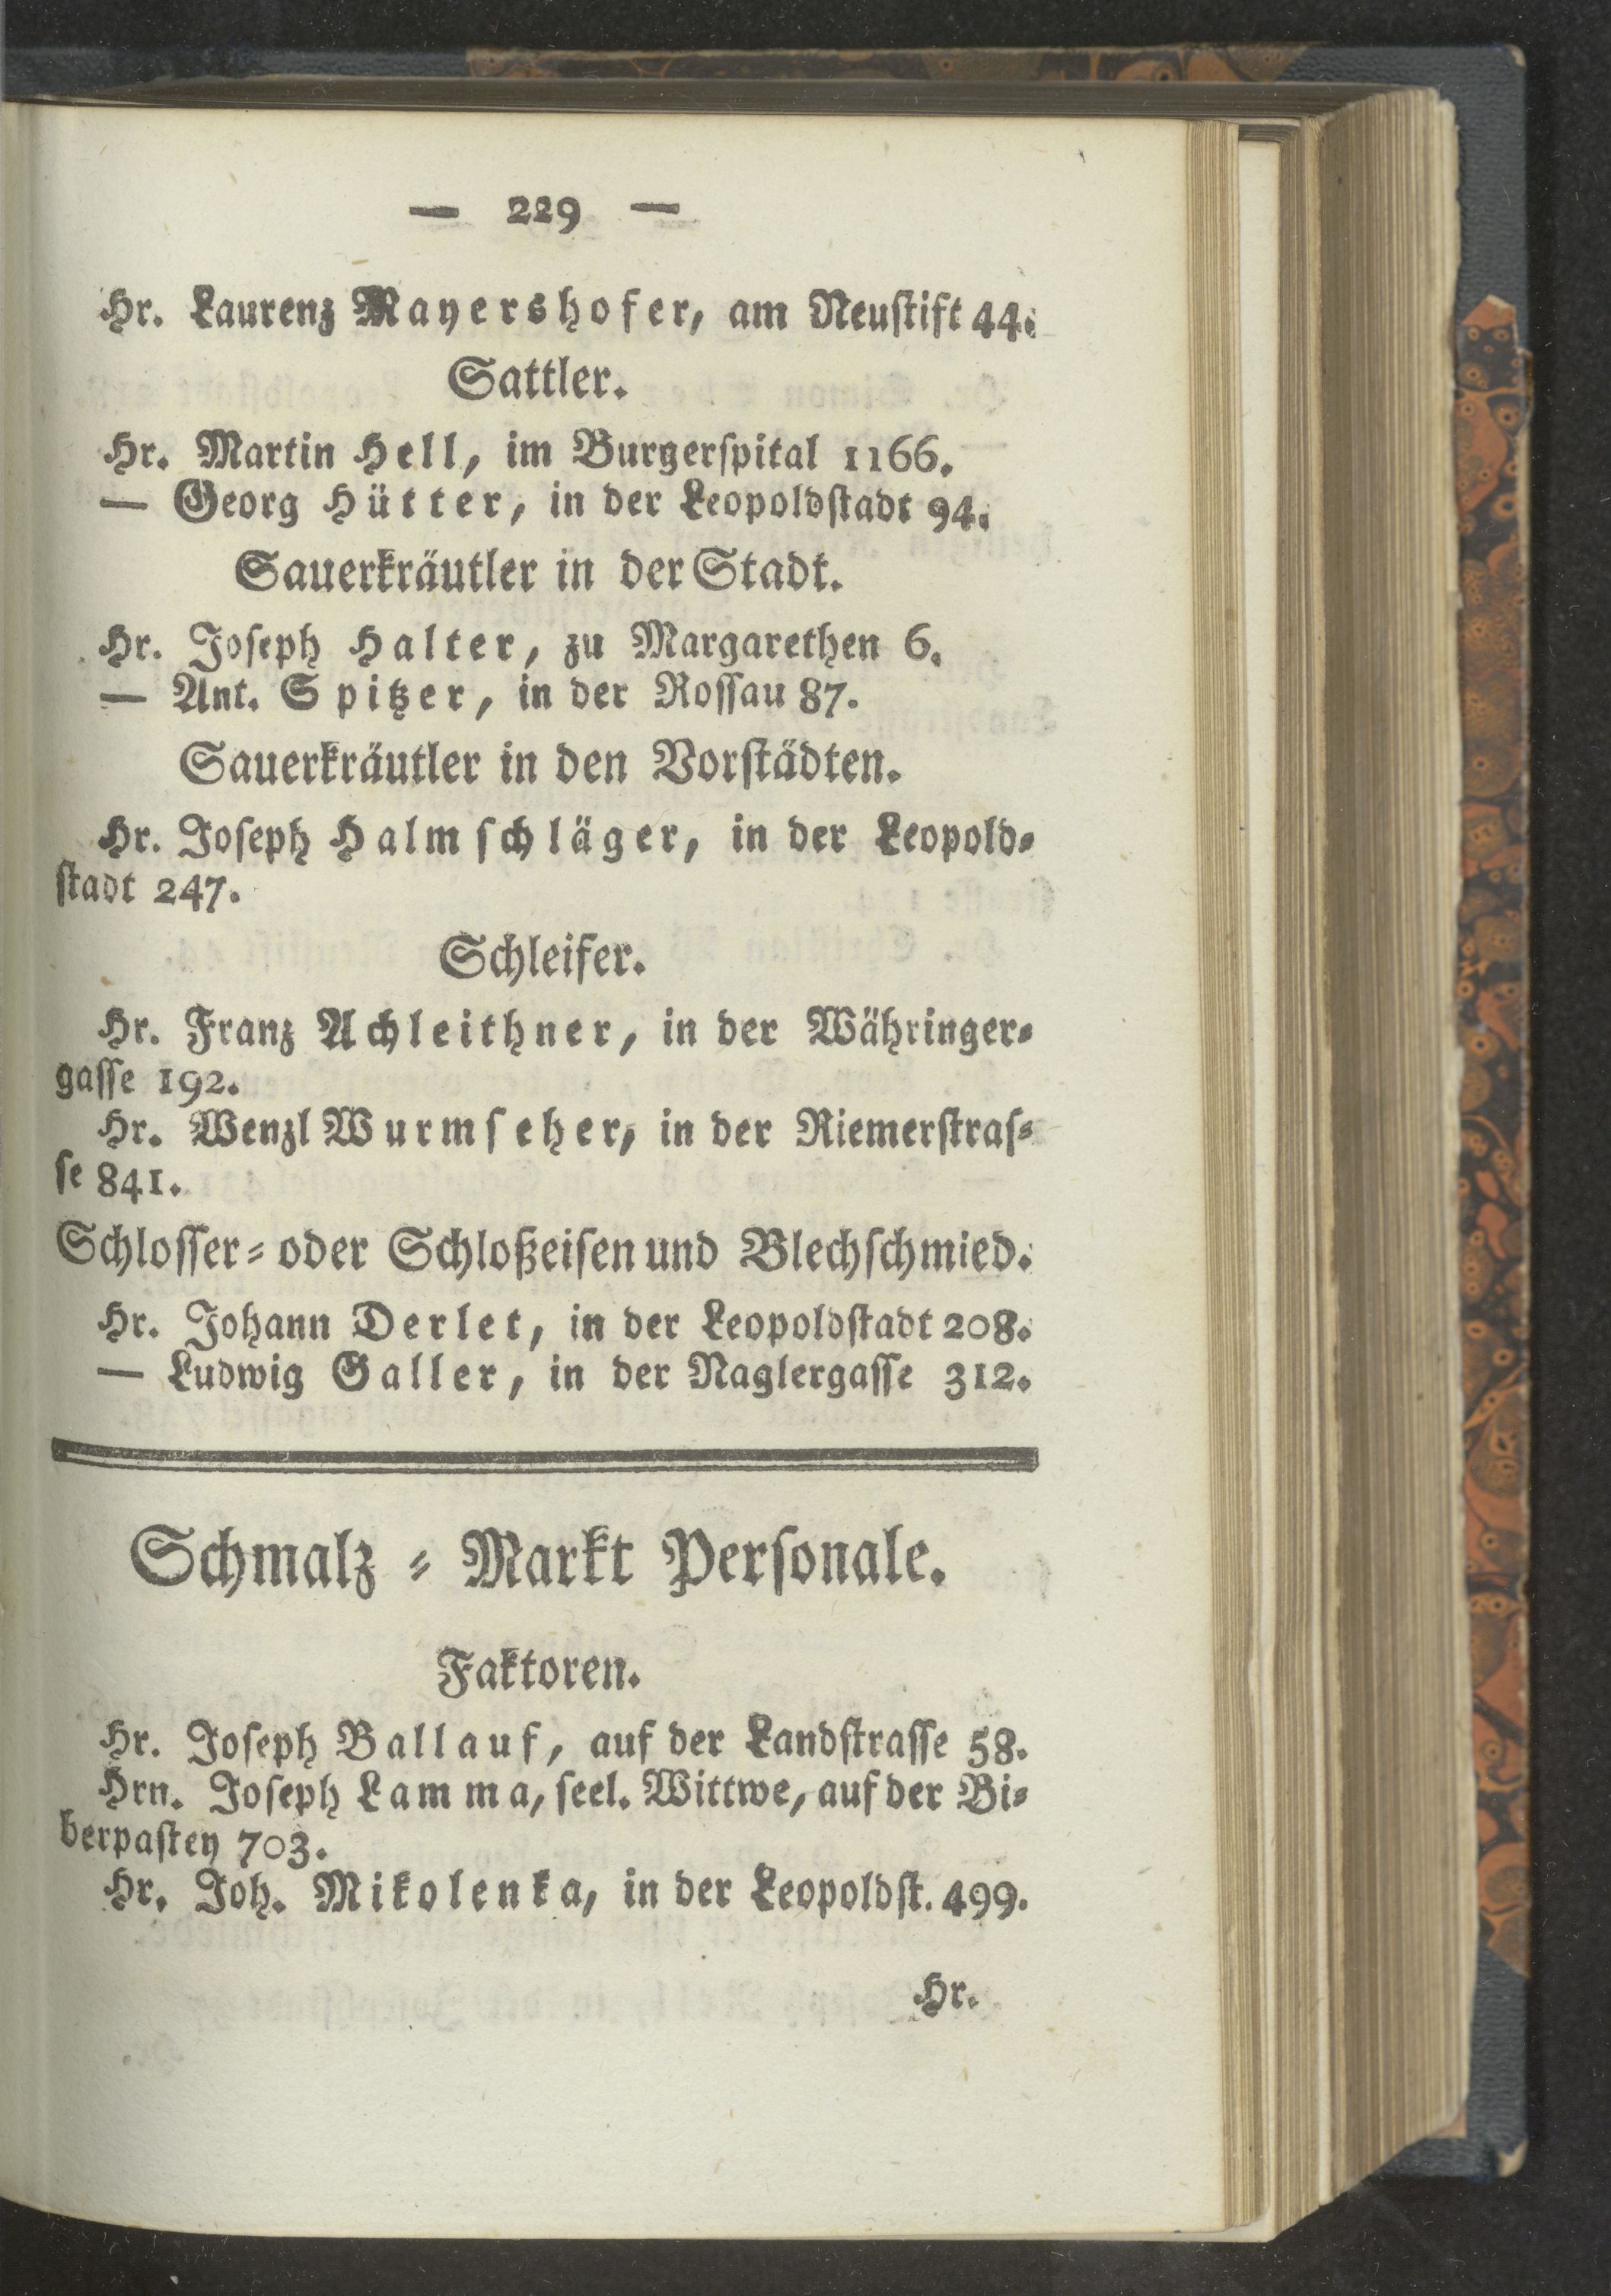 — 229 —
Hr. Laurenz Mayershofer, am Neustift 44.
Sattler.
Hr. Martin Hell, im Burgerspital 1166.
— Georg Hütter, in der Leopoldstadt 94.
Sauerkräutler in der Stadt.
Hr. Joseph Halter, zu Margarethen 6.
— Ant. Spitzer, in der Rossau 87.
Sauerkräutler in den Vorstädten.
Hr. Joseph Halmschläger, in der Leopold-
stadt 247.
Schleifer.
Hr. Franz Achleithner, in der Währinger-
gasse 192.
Hr. Wenzl Wurmseher, in der Riemerstras-
se 841.
Schlosser- oder Schloßeisen und Blechschmied.
Hr. Johann Derlet, in der Leopoldstadt 208.
— Ludwig Galler, in der Naglergasse 312.
Schmalz - Markt Personale.
Faktoren.
Hr. Joseph Ballauf, auf der Landstrasse 58.
Hrn. Joseph Lamma, seel. Wittwe, auf der Bi-
berpastey 703.
Hr. Joh. Mikolenka, in der Leopoldst. 499.
Hr.